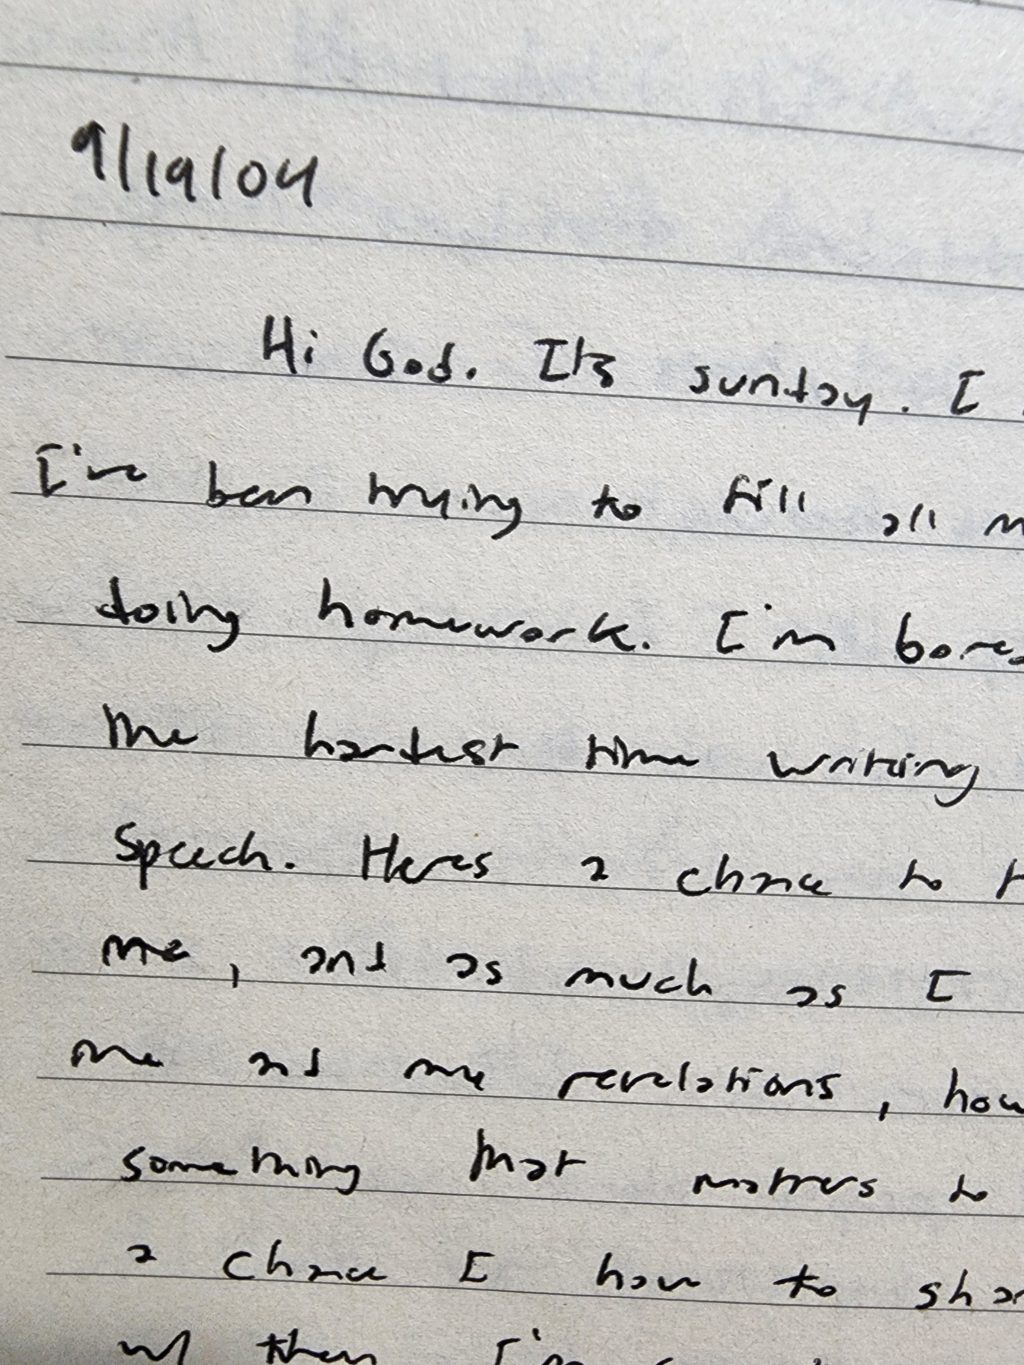 9/19/04
Hi God. It's sunday. I
I've been trying to fill all
doing homework. I'm bored
the hardest time writing
Speech. Heres a chance to
me, and as much as I
me and me revelations, how
something that matters to
a chance I have to shar
w/ them I'm